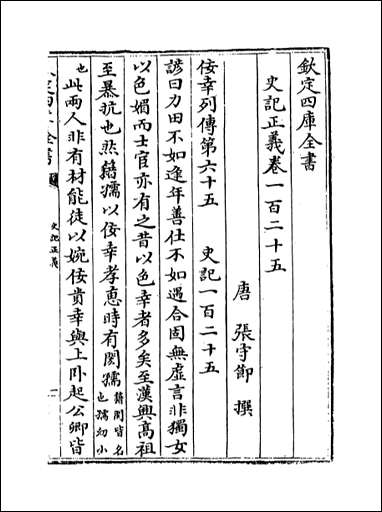 欽定四庫全書
史記正義卷一百二十五
唐 張守節 撰
佞幸列傳第六十五 史記一百二十五
諺曰力田不如逢年善仕不如遇合固無虛言非獨女
以色媚而士宦亦有之昔以色幸者多矣至漢興高祖
至暴抗也然籍孺以佞幸孝惠時有閎孺籍閎皆名也孺幼小
也此兩人非有材能徒以婉佞貴幸與上卧起公卿皆
史記正義